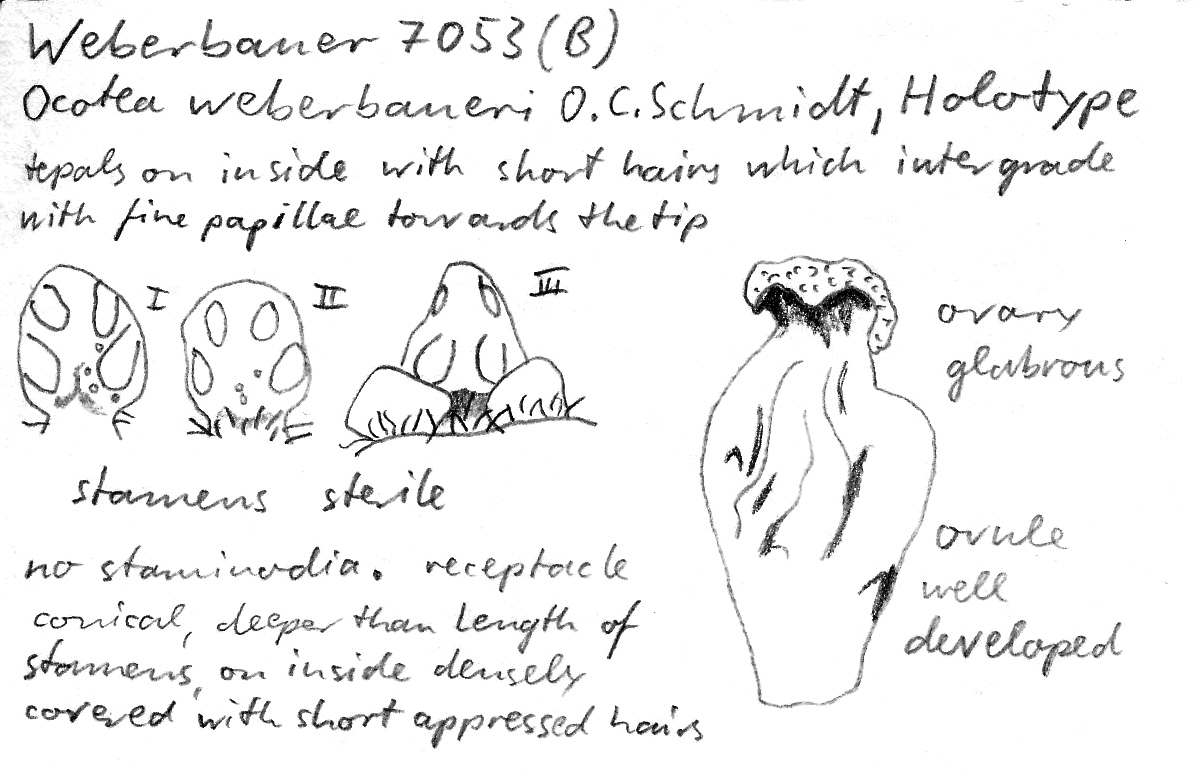 Weberbauer 7053 (B)
Ocotea weberbaueri O.C.Schmidt, Holotype
tepals on inside with short hairs which intergrade
with fine papillae towards the tip
I II III
ovary
glabrous
stamens sterile
ovule
well
developed
no staminodia. receptacle
conical, deeper than length of
stamens, on inside densely
covered with short appressed hairs